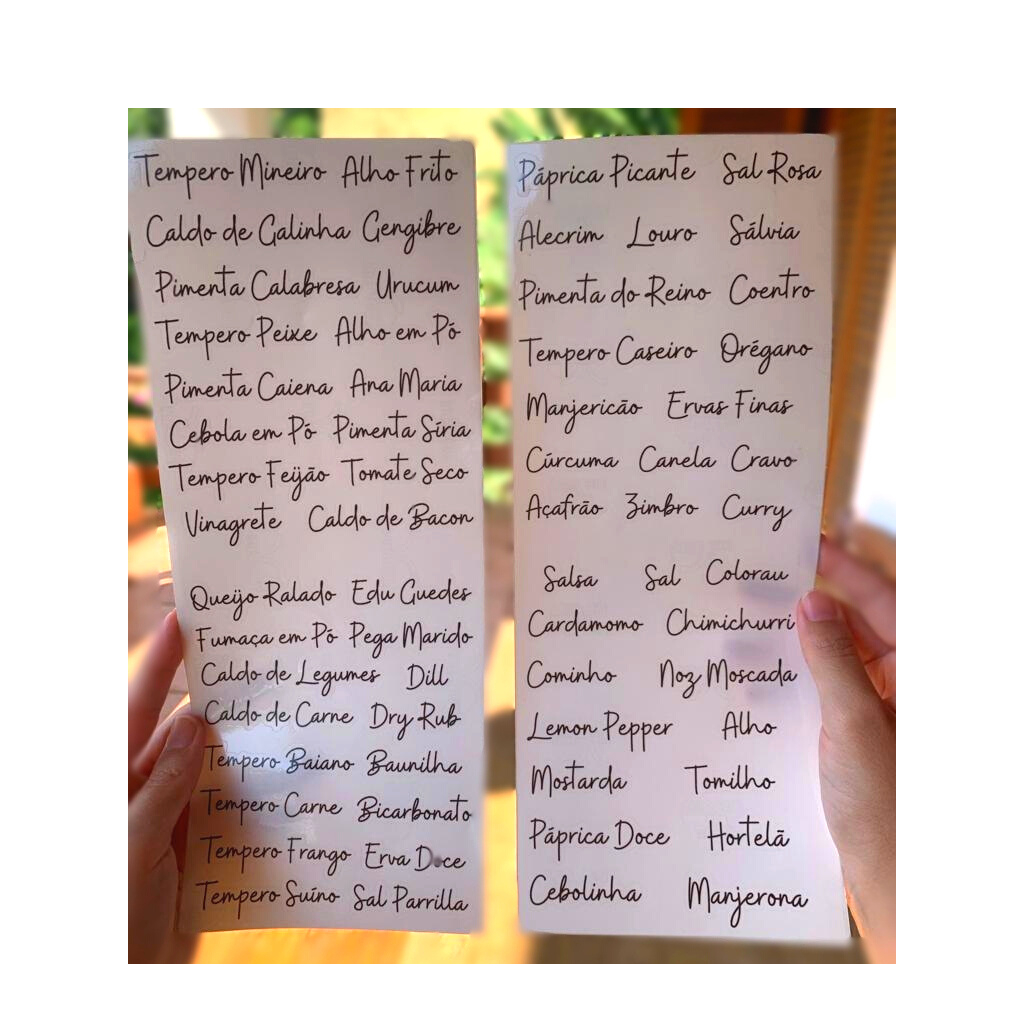 Tempero Mineiro Alho Frito
Caldo de Galinha Gengibre
Pimenta Calabresa Urucum
Tempero Peixe Alho em Pó
Pimenta Caiena Ana Maria
Cebola em Pó Pimenta Síria
Tempero Feijão Tomate Seco
Vinagrete Caldo de Bacon
Queijo Ralado Edu Guedes
Fumaça em Pó Pega Marido
Caldo de Legumes Dill
Caldo de Carne Dry Rub
Tempero Baiano Baunilha
Tempero Carne Bicarbonato
Tempero Frango Erva Doce
Tempero Suíno Sal Parrilla
Páprica Picante Sal Rosa
Alecrim Louro Sálvia
Pimenta do Reino Coentro
Tempero Caseiro Orégano
Manjericão Ervas Finas
Cúrcuma Canela Cravo
Açafrão Zimbro Curry
Salsa Sal Colorau
Cardamomo Chimichurri
Cominho Noz Moscada
Lemon Pepper Alho
Mostarda Tomilho
Páprica Doce Hortelã
Cebolinha Manjerona